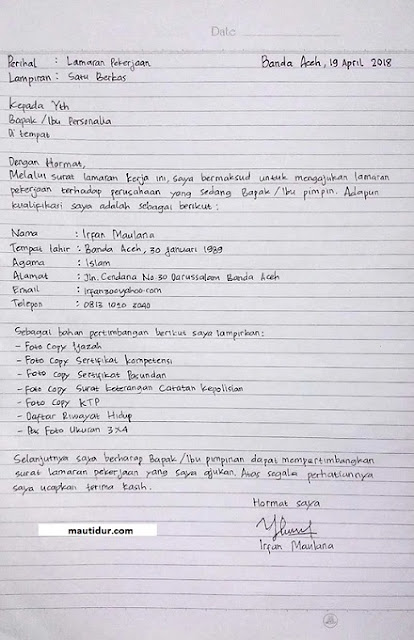 Date
Perihal : Lamaran Pekerjaan Banda Aceh, 19 April 2018
Lampiran : Satu Berkas
Kepada Yth
Bapak/Ibu Personalia
Di tempat
Dengan Hormat,
Melalui surat lamaran kerja ini, saya bermaksud untuk mengajukan lamaran
pekerjaan terhadap perusahaan yang sedang Bapak/Ibu pimpin. Adapun
kualifikasi saya adalah sebagai berikut :
Nama : Irfan Maulana
Tempat lahir : Banda Aceh, 30 Januari 1989
Agama : Islam
Alamat : Jln. Cendana No 30 Darussalam Banda Aceh
Email : irfan300yahoo.com
Telepon : 0813 1020 2040
Sebagai bahan pertimbangan berikut saya lampirkan :
- Foto Copy Ijazah
- Foto Copy Sertifikat Kompetensi
- Foto Copy Sertifikat
- Foto Copy Surat Keterangan Catatan Kepolisian
- Foto Copy KTP
- Daftar Riwayat Hidup
- Pas Foto Ukuran 3x4
Selanjutnya saya berharap Bapak/Ibu pimpinan dapat mempertimbangkan
surat lamaran pekerjaan yang saya ajukan. Atas segala perhatiannya
saya ucapkan terima kasih.
Hormat saya
mautidur.com
Irfan Maulana